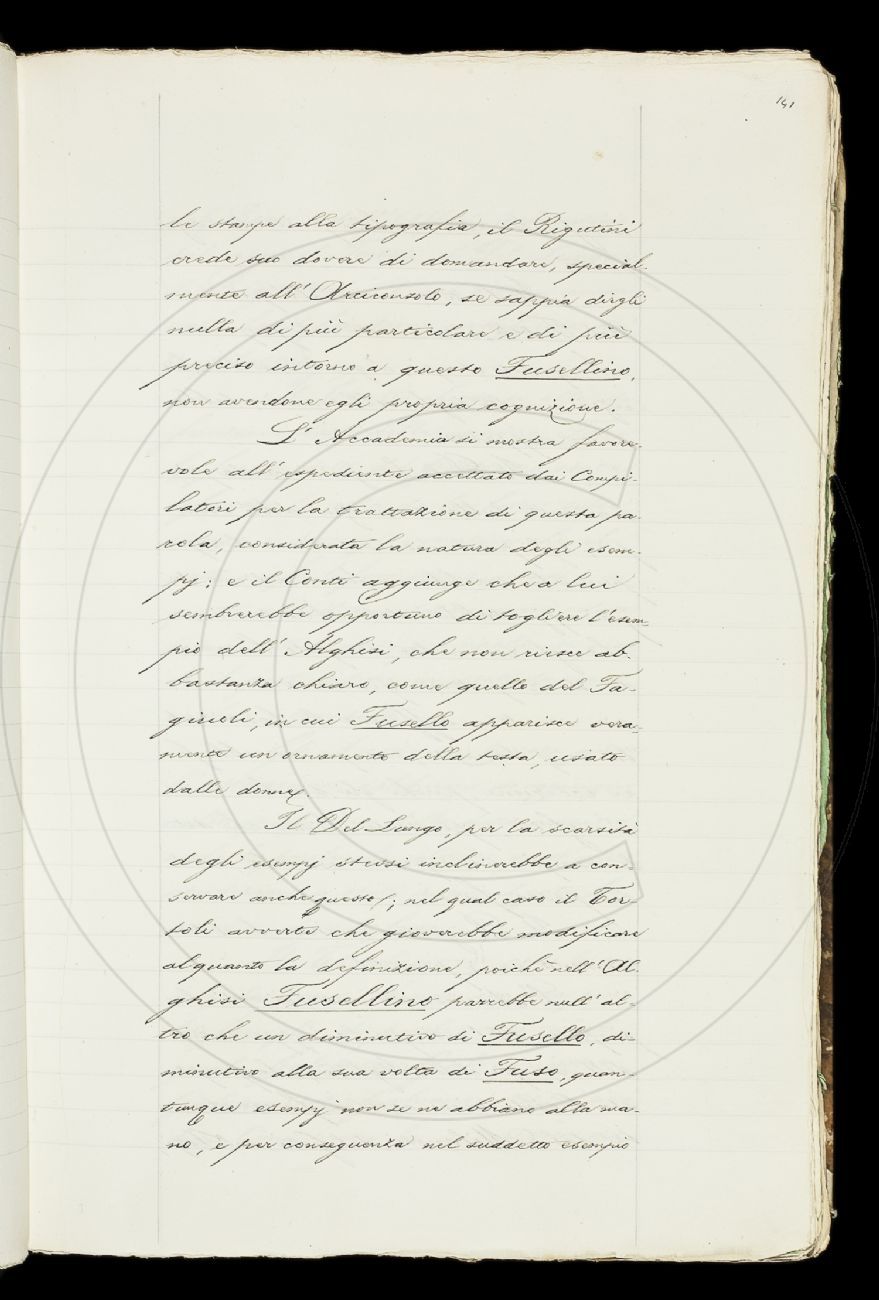 141
le stampe alla tipografia, il Rigutini
crede suo dovere di domandare, special-
mente all' Arciconsolo, se sappia dirgli
nulla di più particolare e di più
preciso intorno a questo Fusellino,
non avendone egli propria cognizione.
L' Accademia si mostra favore-
vole all' espediente accettato dai Compi-
latori per la trattazione di questa pa-
rola, considerata la natura degli esem-
pj; e il Conti aggiunge che a lui
sembrerebbe opportuno di togliere l'esem-
pio dell' Alghisi, che non riesce ab-
bastanza chiaro, come quello del Fa-
giuoli, in cui Fusello apparisce vera-
mente un ornamento della testa, usato
dalle donne.
Il Del Lungo, per la scarsità
degli esempj stessi inclinerebbe a con-
servare anche questo; nel qual caso il Tor-
toli avverte che gioverebbe modificare
alquanto la definizione, poichè nell' Al-
ghisi Fusellino parrebbe null' al-
tro che un diminutivo di Fusello, di-
minutivo alla sua volta di Fuso, quan-
tunque esempj non se ne abbiano alla ma-
no, e per conseguenza nel suddetto esempio